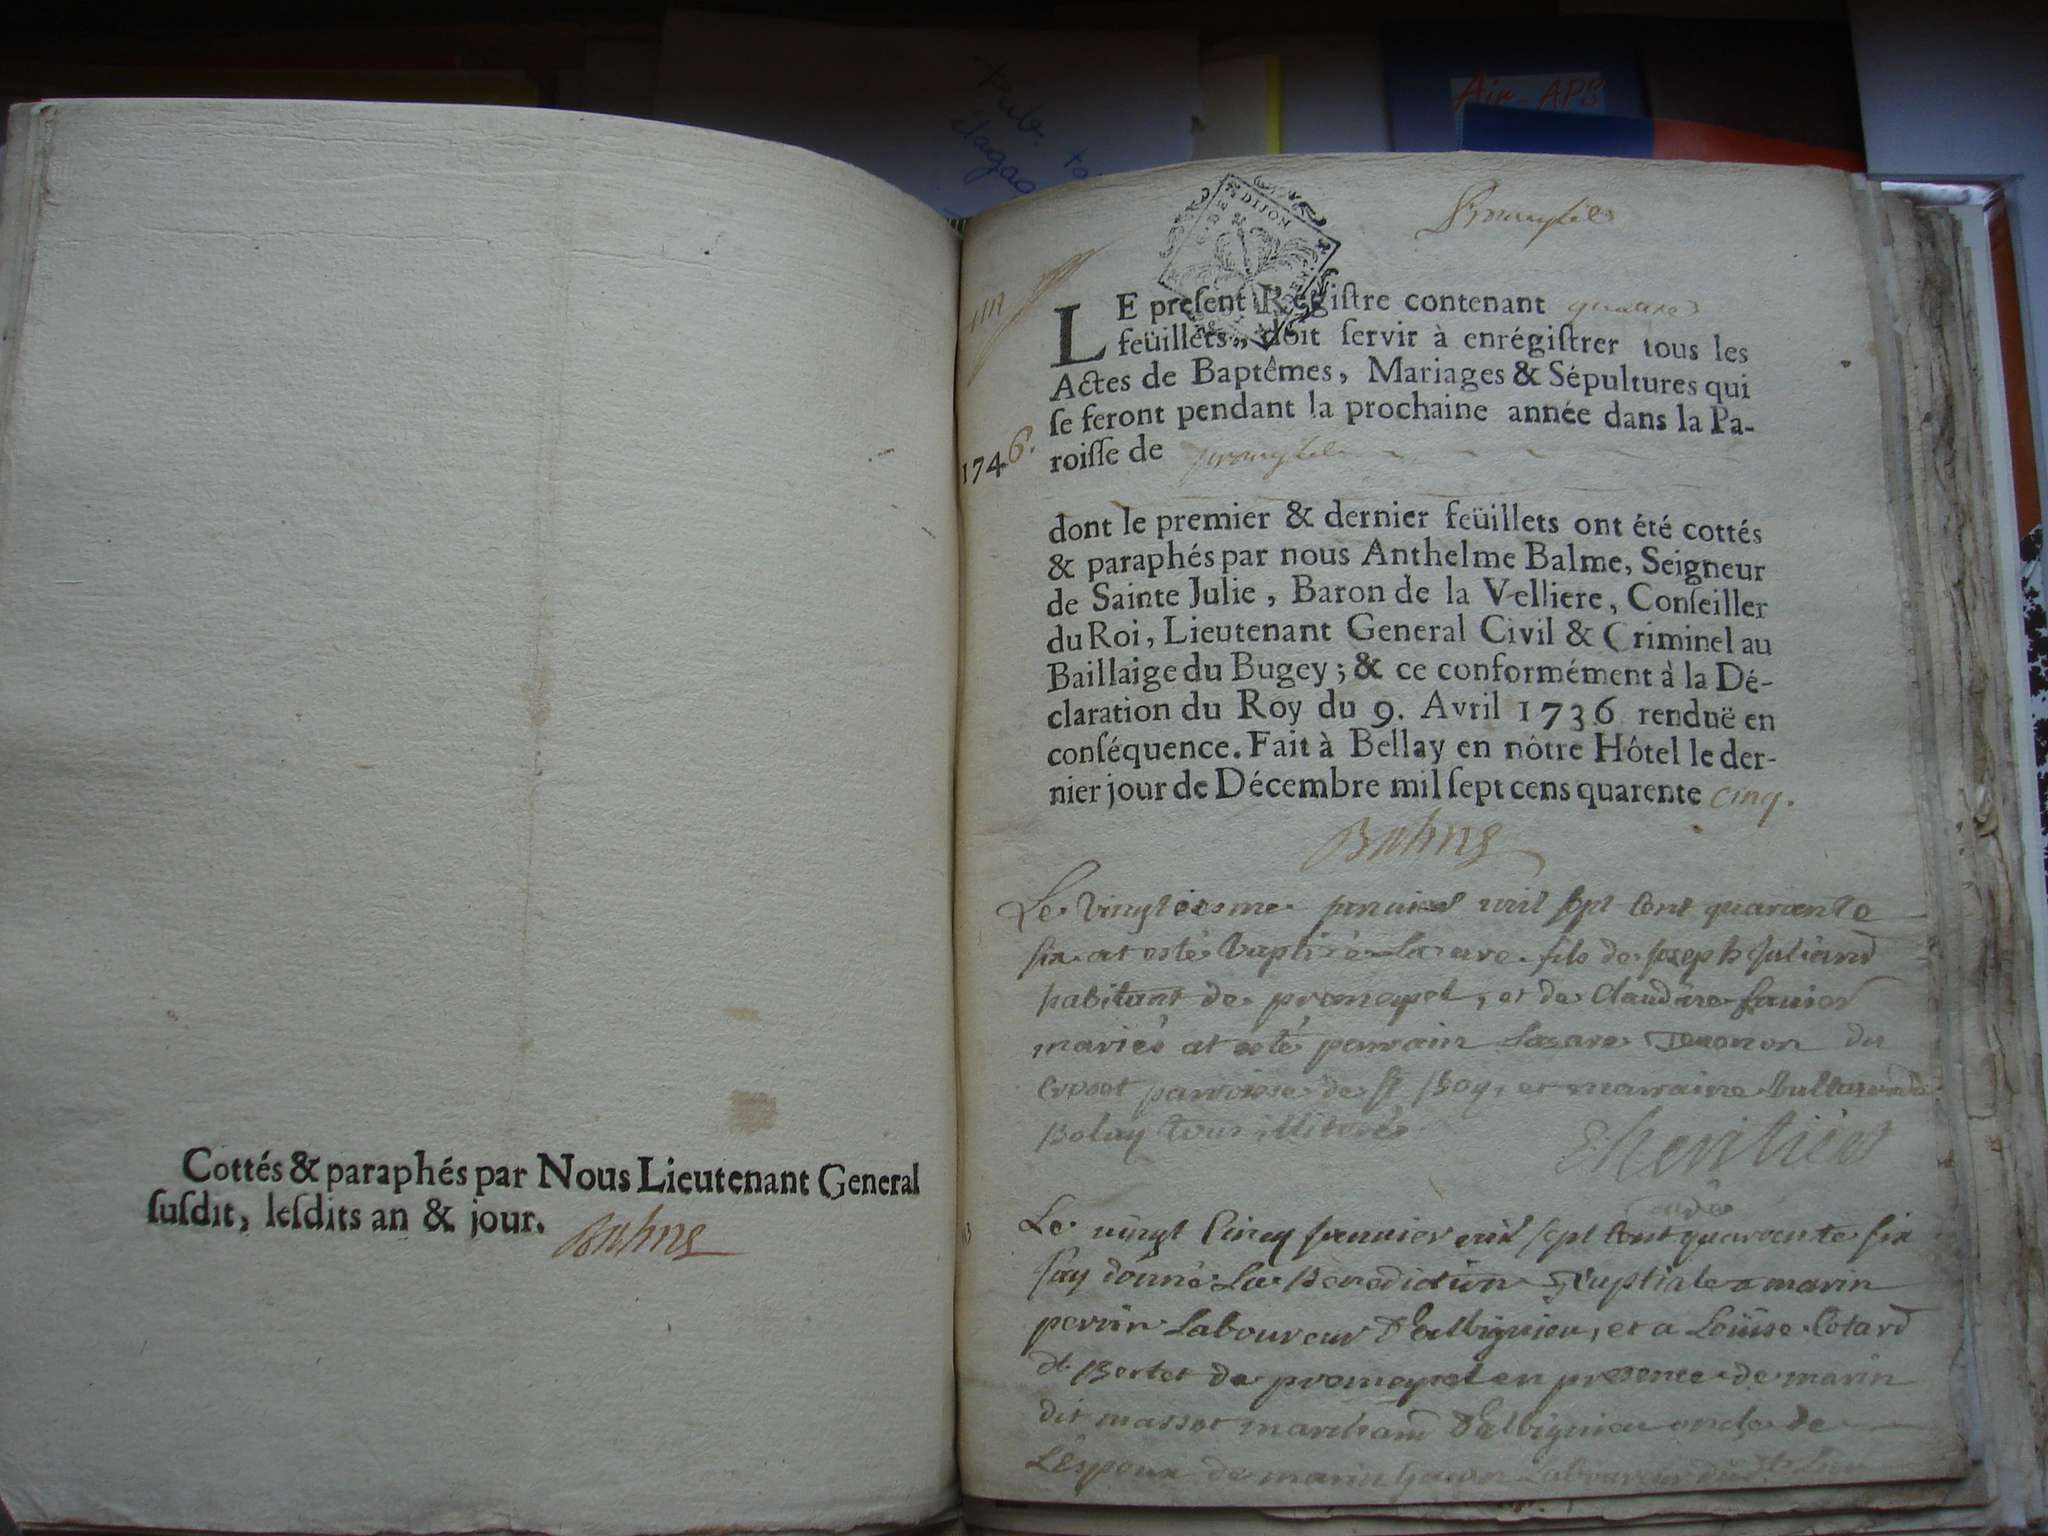 Air-APS
DIJON
LE preſent Régiſtre contenant quattre
feüillets, doit ſervir à enrégiſtrer tous les
Actes de Baptêmes, Mariages & Sépultures qui
ſe feront pendant la prochaine année dans la Pa-
1746.
roiſſe de
dont le premier & dernier feüillets ont été cottés
& paraphés par nous Anthelme Balme, Seigneur
de Sainte Julie, Baron de la Velliere, Conſeiller
du Roi, Lieutenant General Civil & Criminel au
Baillaige du Bugey; & ce conformément à la Dé-
claration du Roy du 9. Avril 1736 renduë en
conſéquence. Fait à Bellay en nôtre Hôtel le der-
nier jour de Décembre mil ſept cens quarente cinq.
Balme
Le vingtiesme janvier mil sept cent quarante
six at esté baptisé Lazare fils de joseph juliand
habitant de promeysel, et de Claudine
mariés at esté parrain Lazare du
paroisse de st Boy, et marraine
Bolay tous illiterés
Lheritier
curé
Le vingt Cinq janvier mil sept cent quarante six
jay donné La Benediction Nuptiale a marin
perrin Laboureur d'albignieu, et a Loüise Cotard
dt Bertet de promeysel en presence de marin
dit massot marchand d'albignieu oncle de
L'Espoux de marin Laboureur dudt Lieu
Cottés & paraphés par Nous Lieutenant General
ſuſdit, leſdits an & jour. Balme